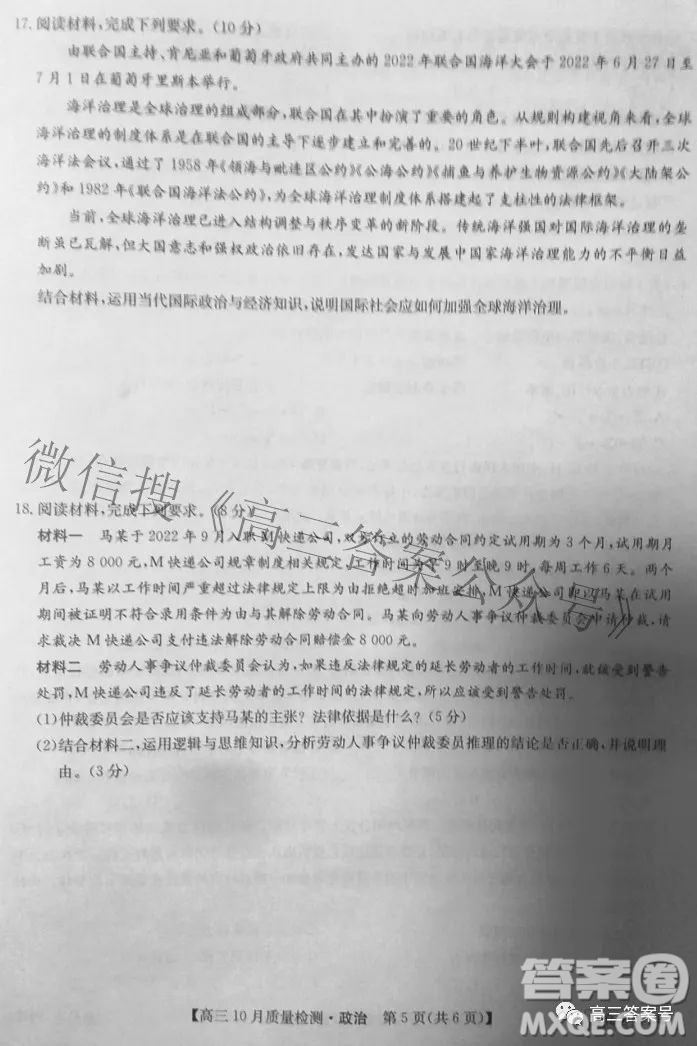 17. 阅读材料,完成下列要求。(10 分)
由联合国主持、肯尼亚和葡萄牙政府共同主办的 2022 年联合国海洋大会于 2022 年 6 月 27 日至
7 月 1 日在葡萄牙里斯本举行。
海洋治理是全球治理的组成部分,联合国在其中扮演了重要的角色。从规则构建视角来看,全球
海洋治理的制度体系是在联合国的主导下逐步建立和完善的。20 世纪下半叶,联合国先后召开三次
海洋法会议,通过了 1958 年《领海与毗连区公约》《公海公约》《捕鱼与养护生物资源公约》《大陆架公
约》和 1982 年《联合国海洋法公约》,为全球海洋治理制度体系搭建起了支柱性的法律框架。
当前,全球海洋治理已进入结构调整与秩序变革的新阶段。传统海洋强国对国际海洋治理的垄
断虽已瓦解,但大国意志和强权政治依旧存在,发达国家与发展中国家海洋治理能力的不平衡日益
加剧。
结合材料,运用当代国际政治与经济知识,说明国际社会应如何加强全球海洋治理。
18. 阅读材料,完成下列要求。(8 分)
材料一 马某于 2022 年 9 月入职 M 快递公司,双方订立的劳动合同约定试用期为 3 个月,试用期月
工资为 8 000 元,M 快递公司规章制度相关规定,工作时间为早 9 时至晚 9 时,每周工作 6 天。两个
月后,马某以工作时间严重超过法律规定上限为由拒绝超时加班安排,M 快递公司即以马某在试用
期间被证明不符合录用条件为由与其解除劳动合同。马某向劳动人事争议仲裁委员会申请仲裁,请
求裁决 M 快递公司支付违法解除劳动合同赔偿金 8 000 元。
材料二 劳动人事争议仲裁委员会认为,如果违反法律规定的延长劳动者的工作时间,就该受到警告
处罚,M 快递公司违反了延长劳动者的工作时间的法律规定,所以该公司应受到警告处罚。
(1)仲裁委员会是否应该支持马某的主张? 法律依据是什么? (5 分)
(2)结合材料二,运用逻辑与思维知识,分析劳动人事争议仲裁委员推理的结论是否正确,并说明理
由。(3 分)
微信搜《高三答案公众号》
【高三 10 月质量检测·政治 第 5 页(共 6 页)】
答案卷
高三答案号
MXQE.COM